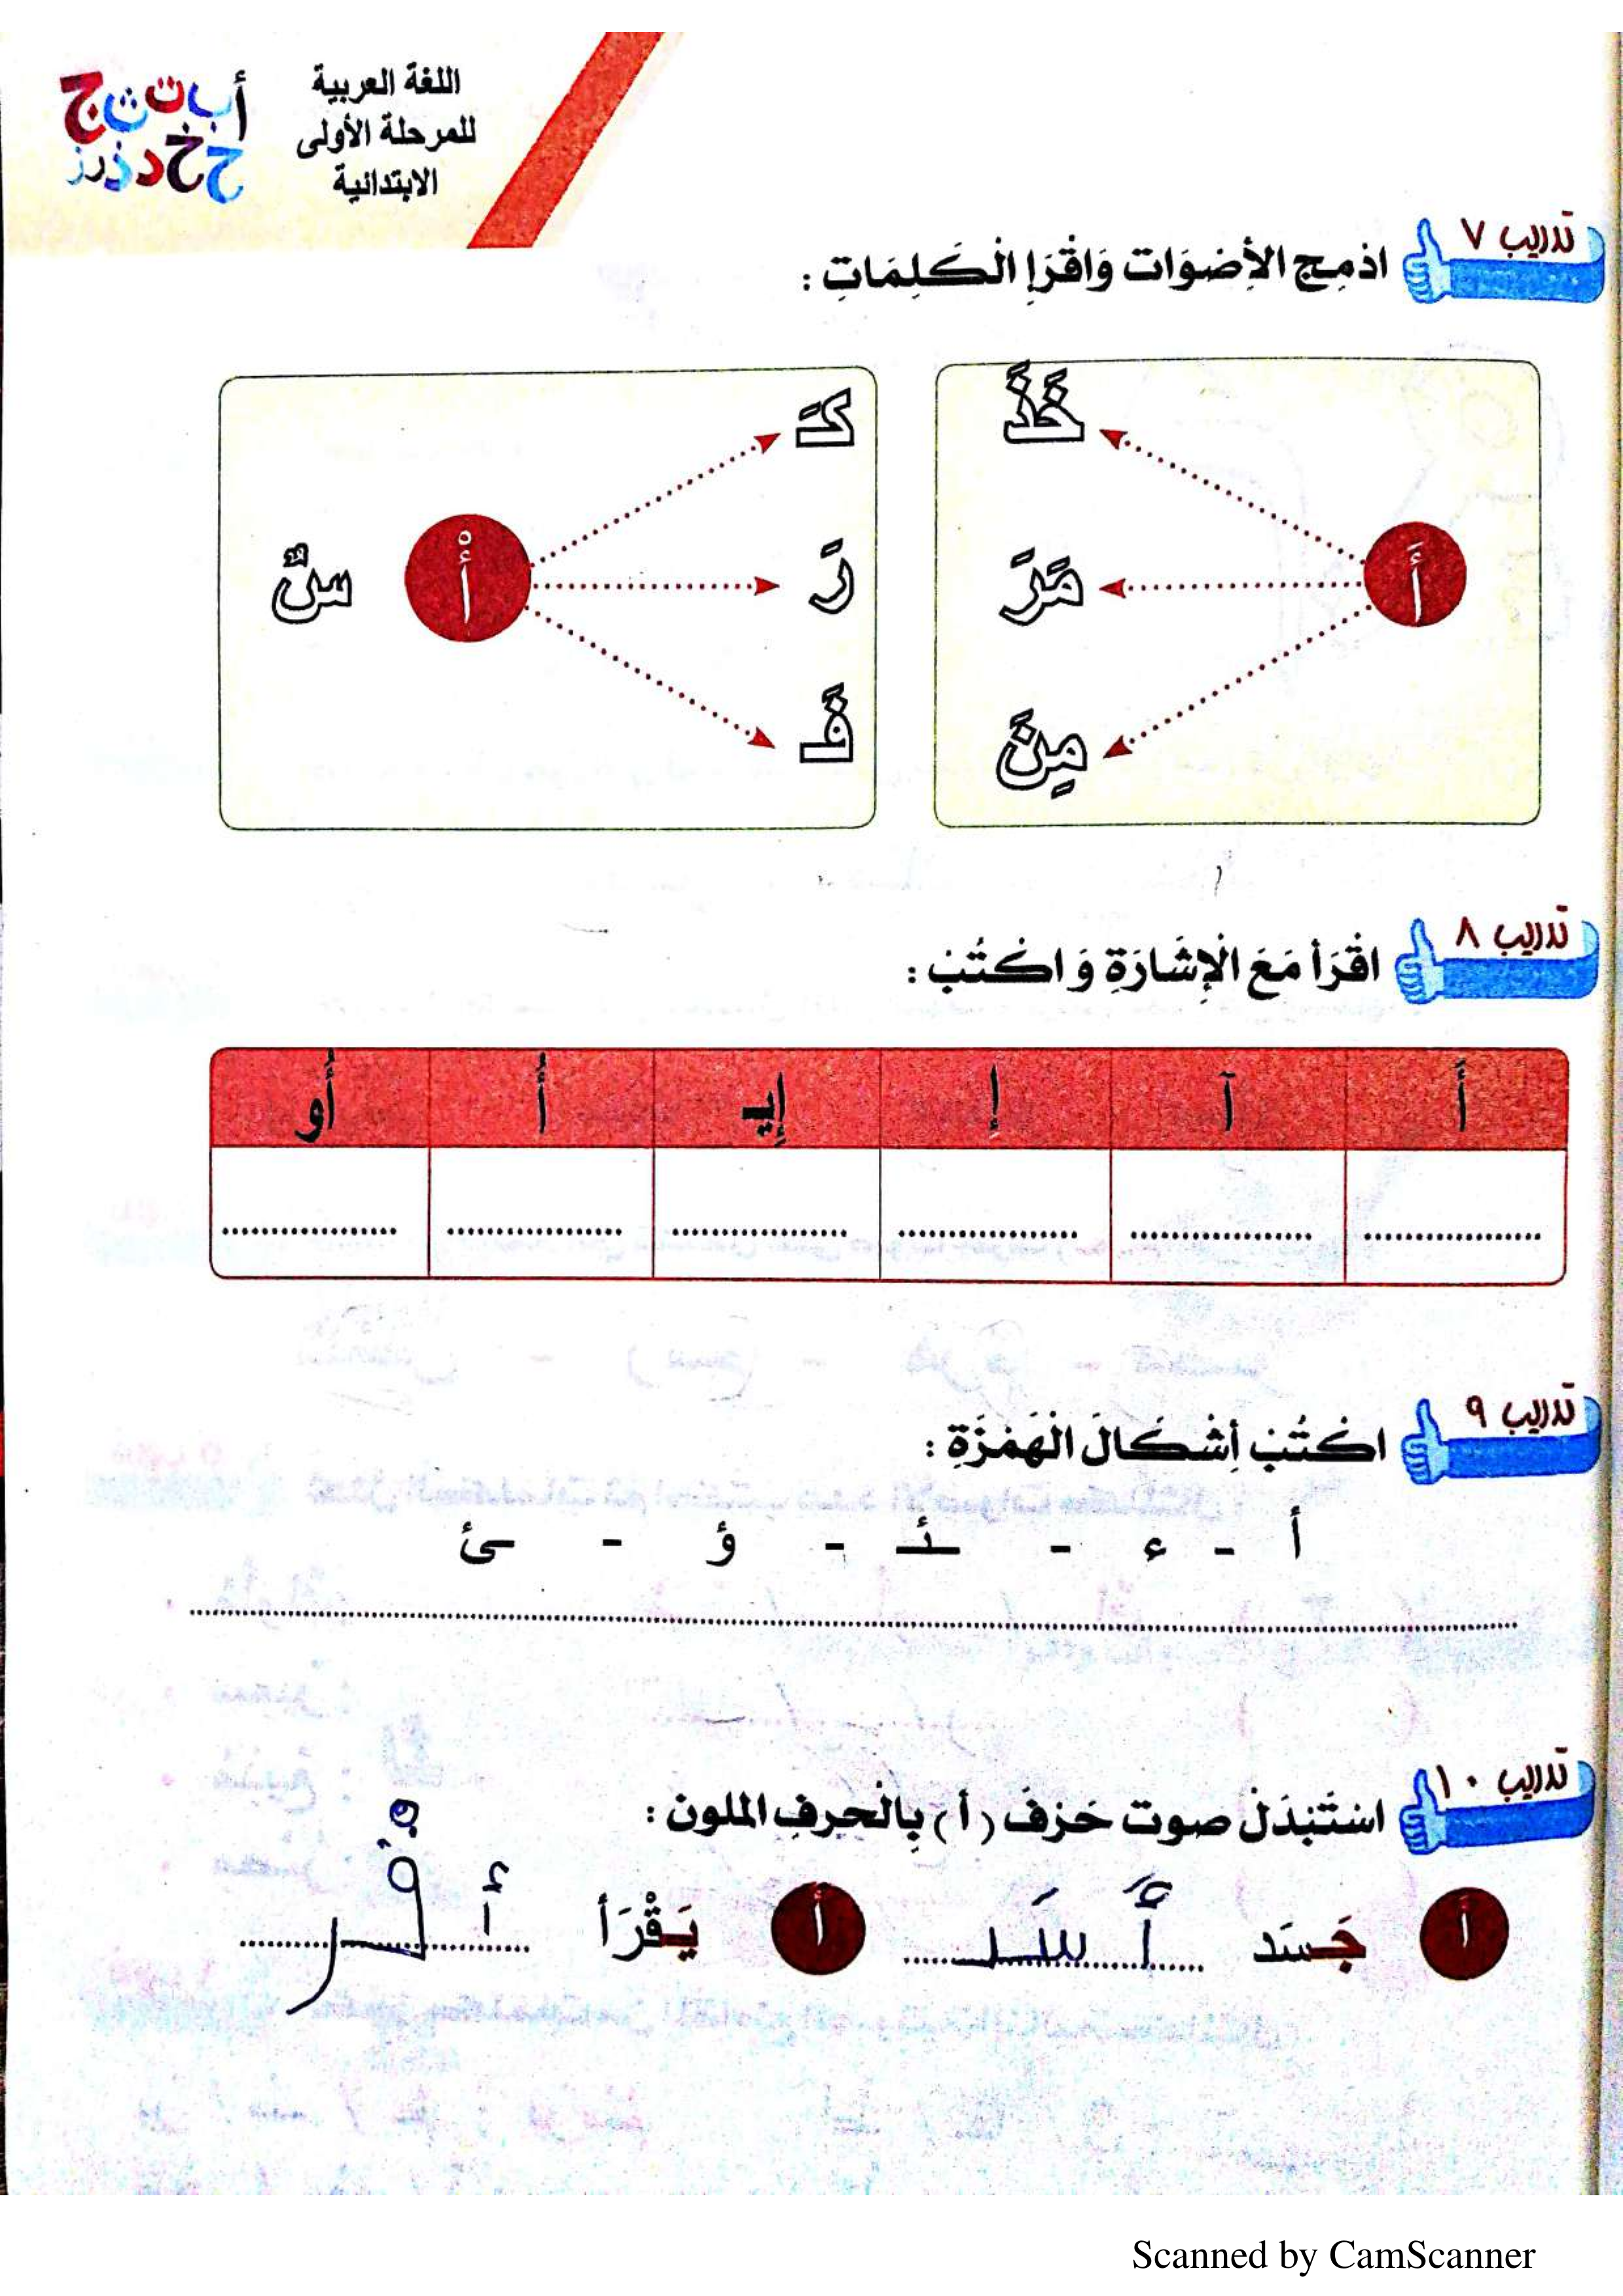 اللغة العربية
للمرحلة الأولى
الابتدائية
أ ب ت ث ج
ح خ د ذ ر ز
تدريب ٧
ادْمِج الأَصْوَات وَاقْرَإِ الْكَلِمَاتِ :
أَ
خَذَ
مَرَ
مِنَ
كَـ
رَ
فَـ
أْ
سٌ
تدريب ٨
اقْرَأ مَعَ الْإِشَارَةِ وَ اكْتُبْ :
أَ آ إِ إِيـ أُ أُو
تدريب ٩
اكْتُبْ أَشْكَالَ الْهَمْزَةِ :
أ - ء - ـئـ - ؤ - ئ
تدريب ١٠
اسْتَبْدَلْ صوت حَرْفَ (أ) بِالْحرفِ الملون :
أَ جَسَد أَسَد أ يَقْرَأ أ قْر
Scanned by CamScanner